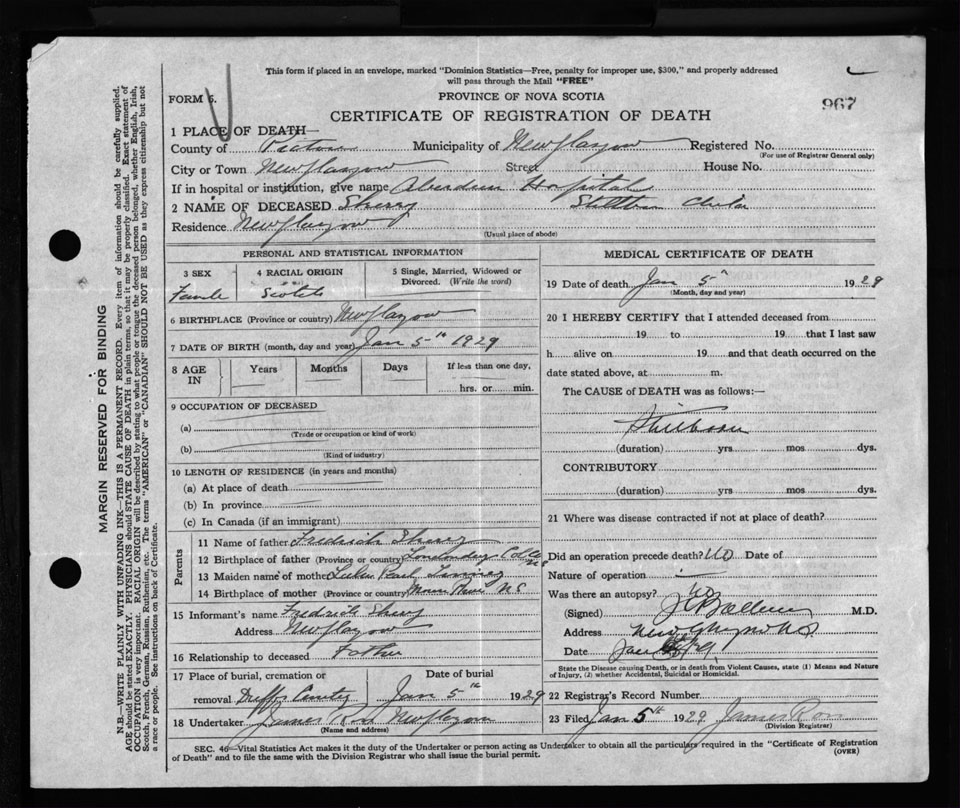 This form if placed in an envelope, marked "Dominion Statistics—Free, penalty for improper use, $300," and properly addressed
will pass through the Mail "FREE"
FORM 6.
PROVINCE OF NOVA SCOTIA
967
CERTIFICATE OF REGISTRATION OF DEATH
1 PLACE OF DEATH—
County of Pictou Municipality of New Glasgow Registered No.
(For use of Registrar General only)
City or Town New Glasgow Street House No.
If in hospital or institution, give name Aberdeen Hospital
2 NAME OF DECEASED Sherry
Residence New Glasgow
(Usual place of abode)
PERSONAL AND STATISTICAL INFORMATION
3 SEX
Female
4 RACIAL ORIGIN
Scotch
5 Single, Married, Widowed or
Divorced. (Write the word)
6 BIRTHPLACE (Province or country) New Glasgow
7 DATE OF BIRTH (month, day and year) Jan 5th 1929
8 AGE IN
Years Months Days If less than one day,
hrs. or min.
9 OCCUPATION OF DECEASED
(a)
(Trade or occupation or kind of work)
(b)
(Kind of industry)
10 LENGTH OF RESIDENCE (in years and months)
(a) At place of death
(b) In province
(c) In Canada (if an immigrant)
Parents
11 Name of father Fredrich Sherry
12 Birthplace of father (Province or country) Londonderry Col Co NS
13 Maiden name of mother Pearl
14 Birthplace of mother (Province or country) NS
15 Informant's name Fredrich Sherry
Address New Glasgow
16 Relationship to deceased Father
17 Place of burial, cremation or Date of burial
removal Duffs Cemetery Jan 5th 1929
18 Undertaker James Ross New Glasgow
(Name and address)
MEDICAL CERTIFICATE OF DEATH
19 Date of death Jan 5th 1929
(Month, day and year)
20 I HEREBY CERTIFY that I attended deceased from
19 to 19 that I last saw
h alive on 19 and that death occurred on the
date stated above, at m.
The CAUSE of DEATH was as follows:—
Stillborn
(duration) yrs mos dys.
CONTRIBUTORY
(duration) yrs mos dys.
21 Where was disease contracted if not at place of death?
Did an operation precede death? No Date of
Nature of operation
Was there an autopsy? No
(Signed) M.D.
Address New Glasgow NS
Date Jan
State the Disease causing Death, or in death from Violent Causes, state (1) Means and Nature
of Injury, (2) whether Accidental, Suicidal or Homicidal.
22 Registrar's Record Number
23 Filed Jan 5th 1929 James Ross
(Division Registrar)
SEC. 46—Vital Statistics Act makes it the duty of the Undertaker or person acting as Undertaker to obtain all the particulars required in the "Certificate of Registration
of Death" and to file the same with the Division Registrar who shall issue the burial permit.
(OVER)
MARGIN RESERVED FOR BINDING
N.B.—WRITE PLAINLY WITH UNFADING INK—THIS IS A PERMANENT RECORD. Every item of information should be carefully supplied.
AGE should be stated EXACTLY. PHYSICIANS should STATE CAUSE OF DEATH in plain terms, so that it may be properly classified. Exact statement of
OCCUPATION is very important. RACIAL ORIGIN will be described by stating to what people or tongue the deceased person belonged, whether English, Irish,
Scotch, French, German, Russian, Ruthenian, etc. The terms "AMERICAN" or "CANADIAN" SHOULD NOT BE USED as they express citizenship but not
a race or people. See instructions on back of Certificate.